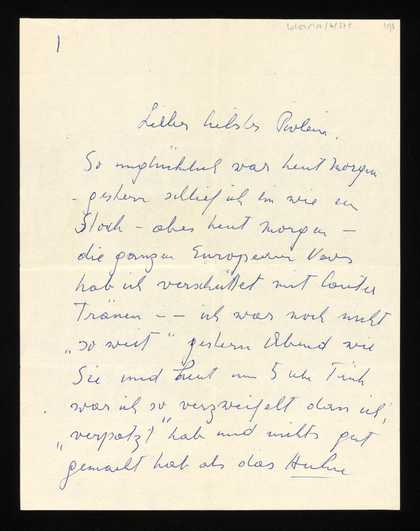 1
Liebes liebstes
So unglücklich war heut Morgen
- gestern schlief ich ein wie ein
Stock - aber heut Morgen -
die ganzen European
hab ich verschüttet mit lauter
Tränen - - ich war noch nicht
"so weit" gestern Abend wie
Sie und heut um 5 Uhr Früh
war ich so verzweifelt dass ich
"verpatzt" hab und nichts gut
gemacht hab als das Huhn